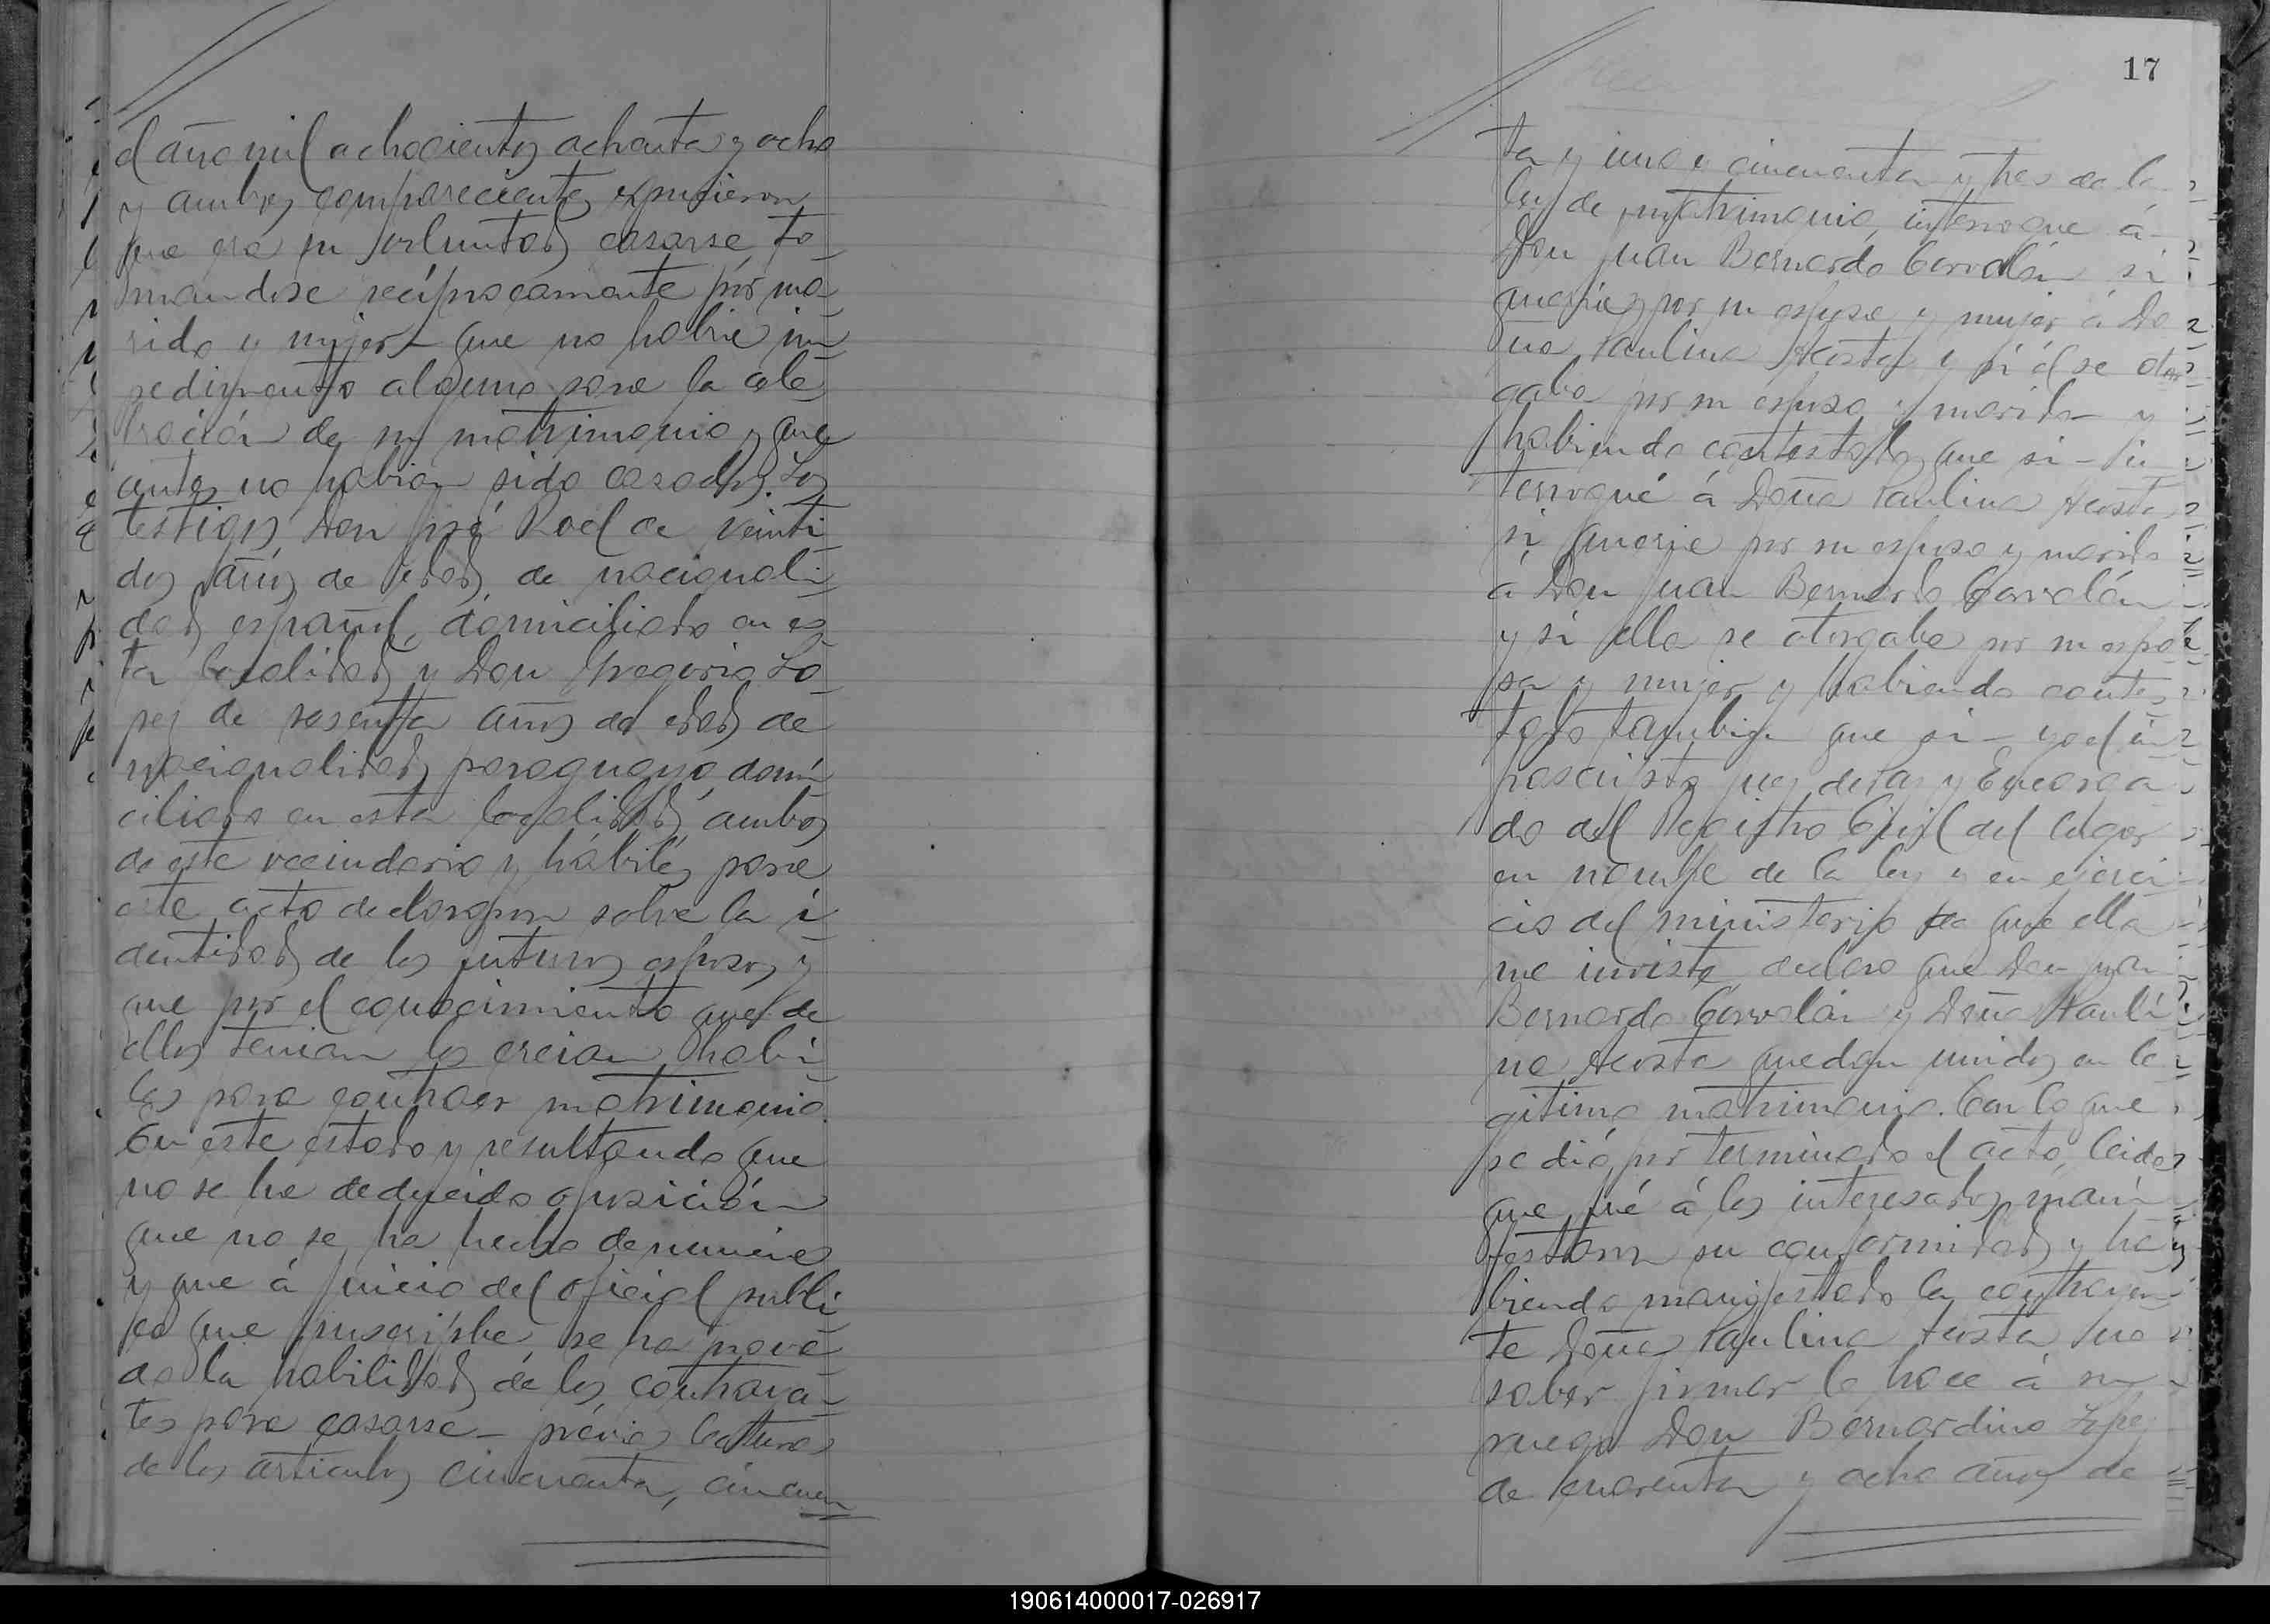 el año mil ochocientos ochenta y ocho
y ambos comparecientes expusieron
que era su voluntad casarse to-
mandose recíprocamente por ma-
rido y mujer - que no habia im-
pedimento alguno para la cele-
bración de su matrimonio y que
antes no habian sido casados. Los
testigos Don José Roel de veinti-
dos años de edad, de nacionali-
dad español, domiciliado en es-
ta localidad y Don Gregorio Lo-
pez de sesenta años de edad de
nacionalidad paraguayo, domi-
ciliado en esta localidad, ambos
de este vecindario y hábiles para
este acto declararon sobre la i-
dentidad de los futuros esposos y
que por el conocimiento que de
ellos tenian los creian habi-
les para contraer matrimonio.
En este estado y resultando que
no se ha deducido oposición
que no se ha hecho denuncia
y que á juicio del oficial públi-
co que suscribe, se ha prova-
do la habilidad de los contraya-
tes para casarse - prévia lectura
de los articulos cincuenta, cincuen-
17
ta y uno y cincuenta y tres de la
ley de matrimonio, interrogue á
Don Juan Bernardo Corvalán si
queria por su esposa y mujer á Do-
ña Paulina Acosta y si él se otor-
gaba por su esposo y marido y
habiendo contestado que si - in-
terrogué á Doña Paulina Acosta
si queria por su esposo y marido
á Don Juan Bernardo Corvalán
y si ella se otorgaba por su espo-
sa y mujer y habiendo contes-
tado tambien que si - yo el in-
frascripto Juez de Paz y Encarga-
do del Registro Civil del lugar
en nombre de la ley y en ejerci-
cio del ministerio de que ella
me inviste, declaro que Don Juan
Bernardo Corvalán y Doña Pauli-
na Acosta quedan unidos en le-
gitimo matrimonio. Con lo que
se dió por terminado el acto, leida
que fué á los interesados, mani-
festaron su conformidad y ha-
biendo manifestado la contrayen-
te Doña Paulina Acosta, no
saber firmar lo hace á su
ruego Don Bernardino Lopez
de cuarenta y ocho años de
190614000017-026917